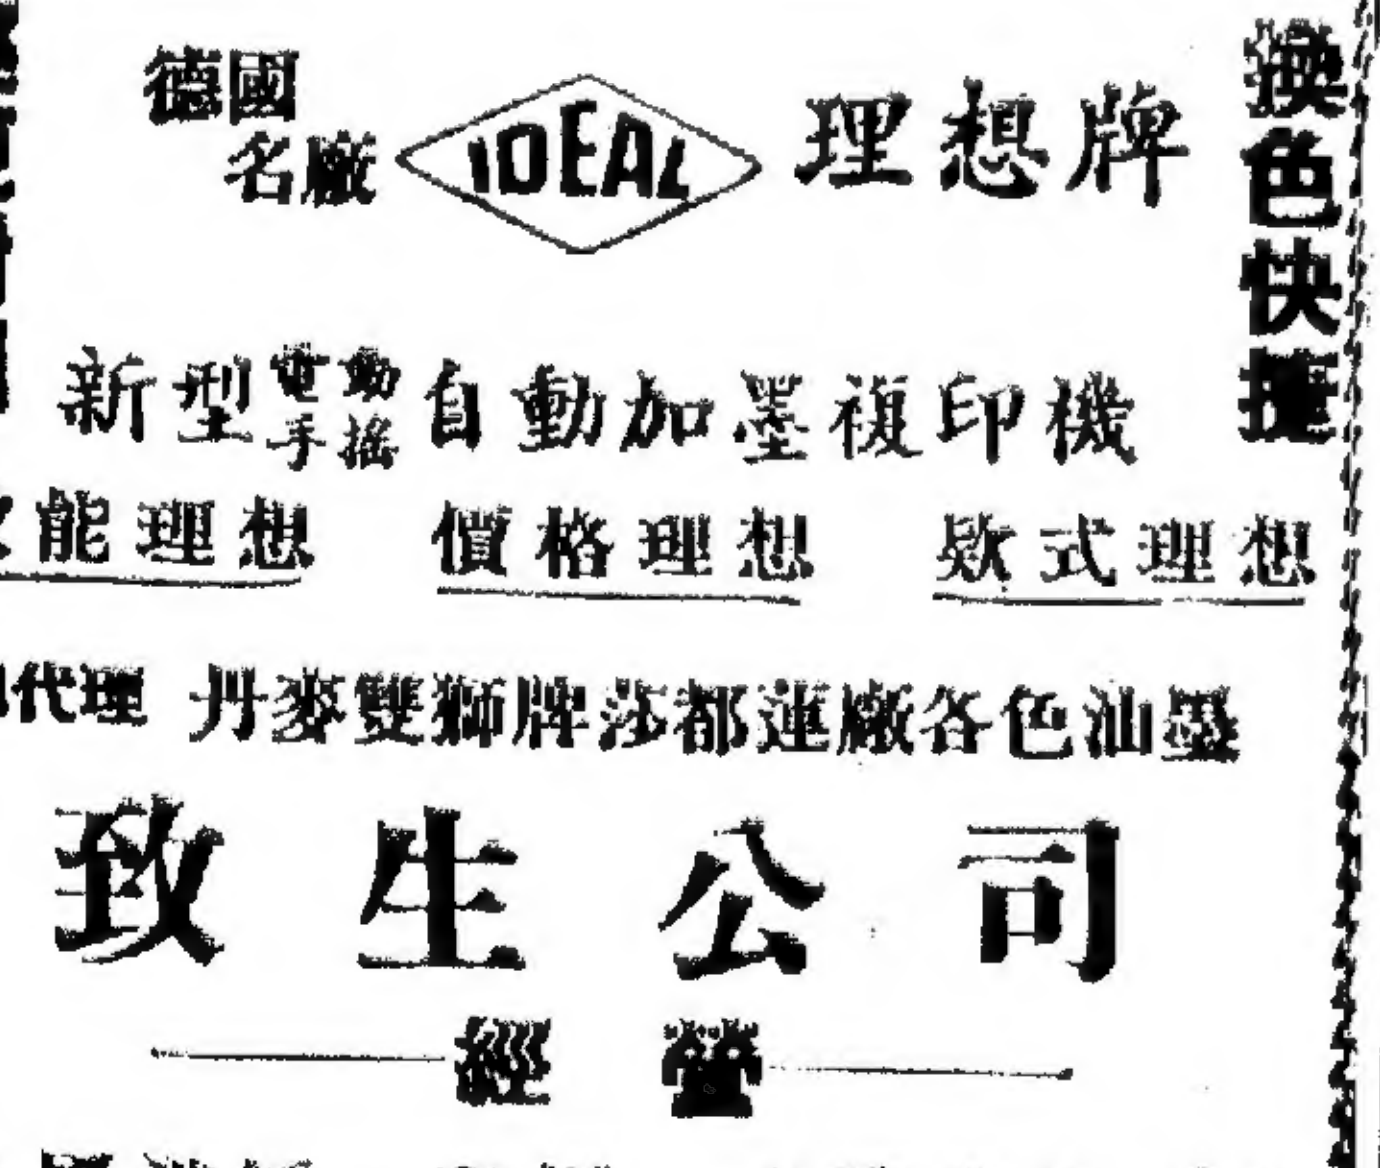 德國
名廠
IDEAL
理想牌
換色快捷
新型電動手搖自動加墨複印機
能理想 價格理想 欵式理想
代理 丹麥雙獅牌莎都蓮廠各色油墨
致生公司
經營